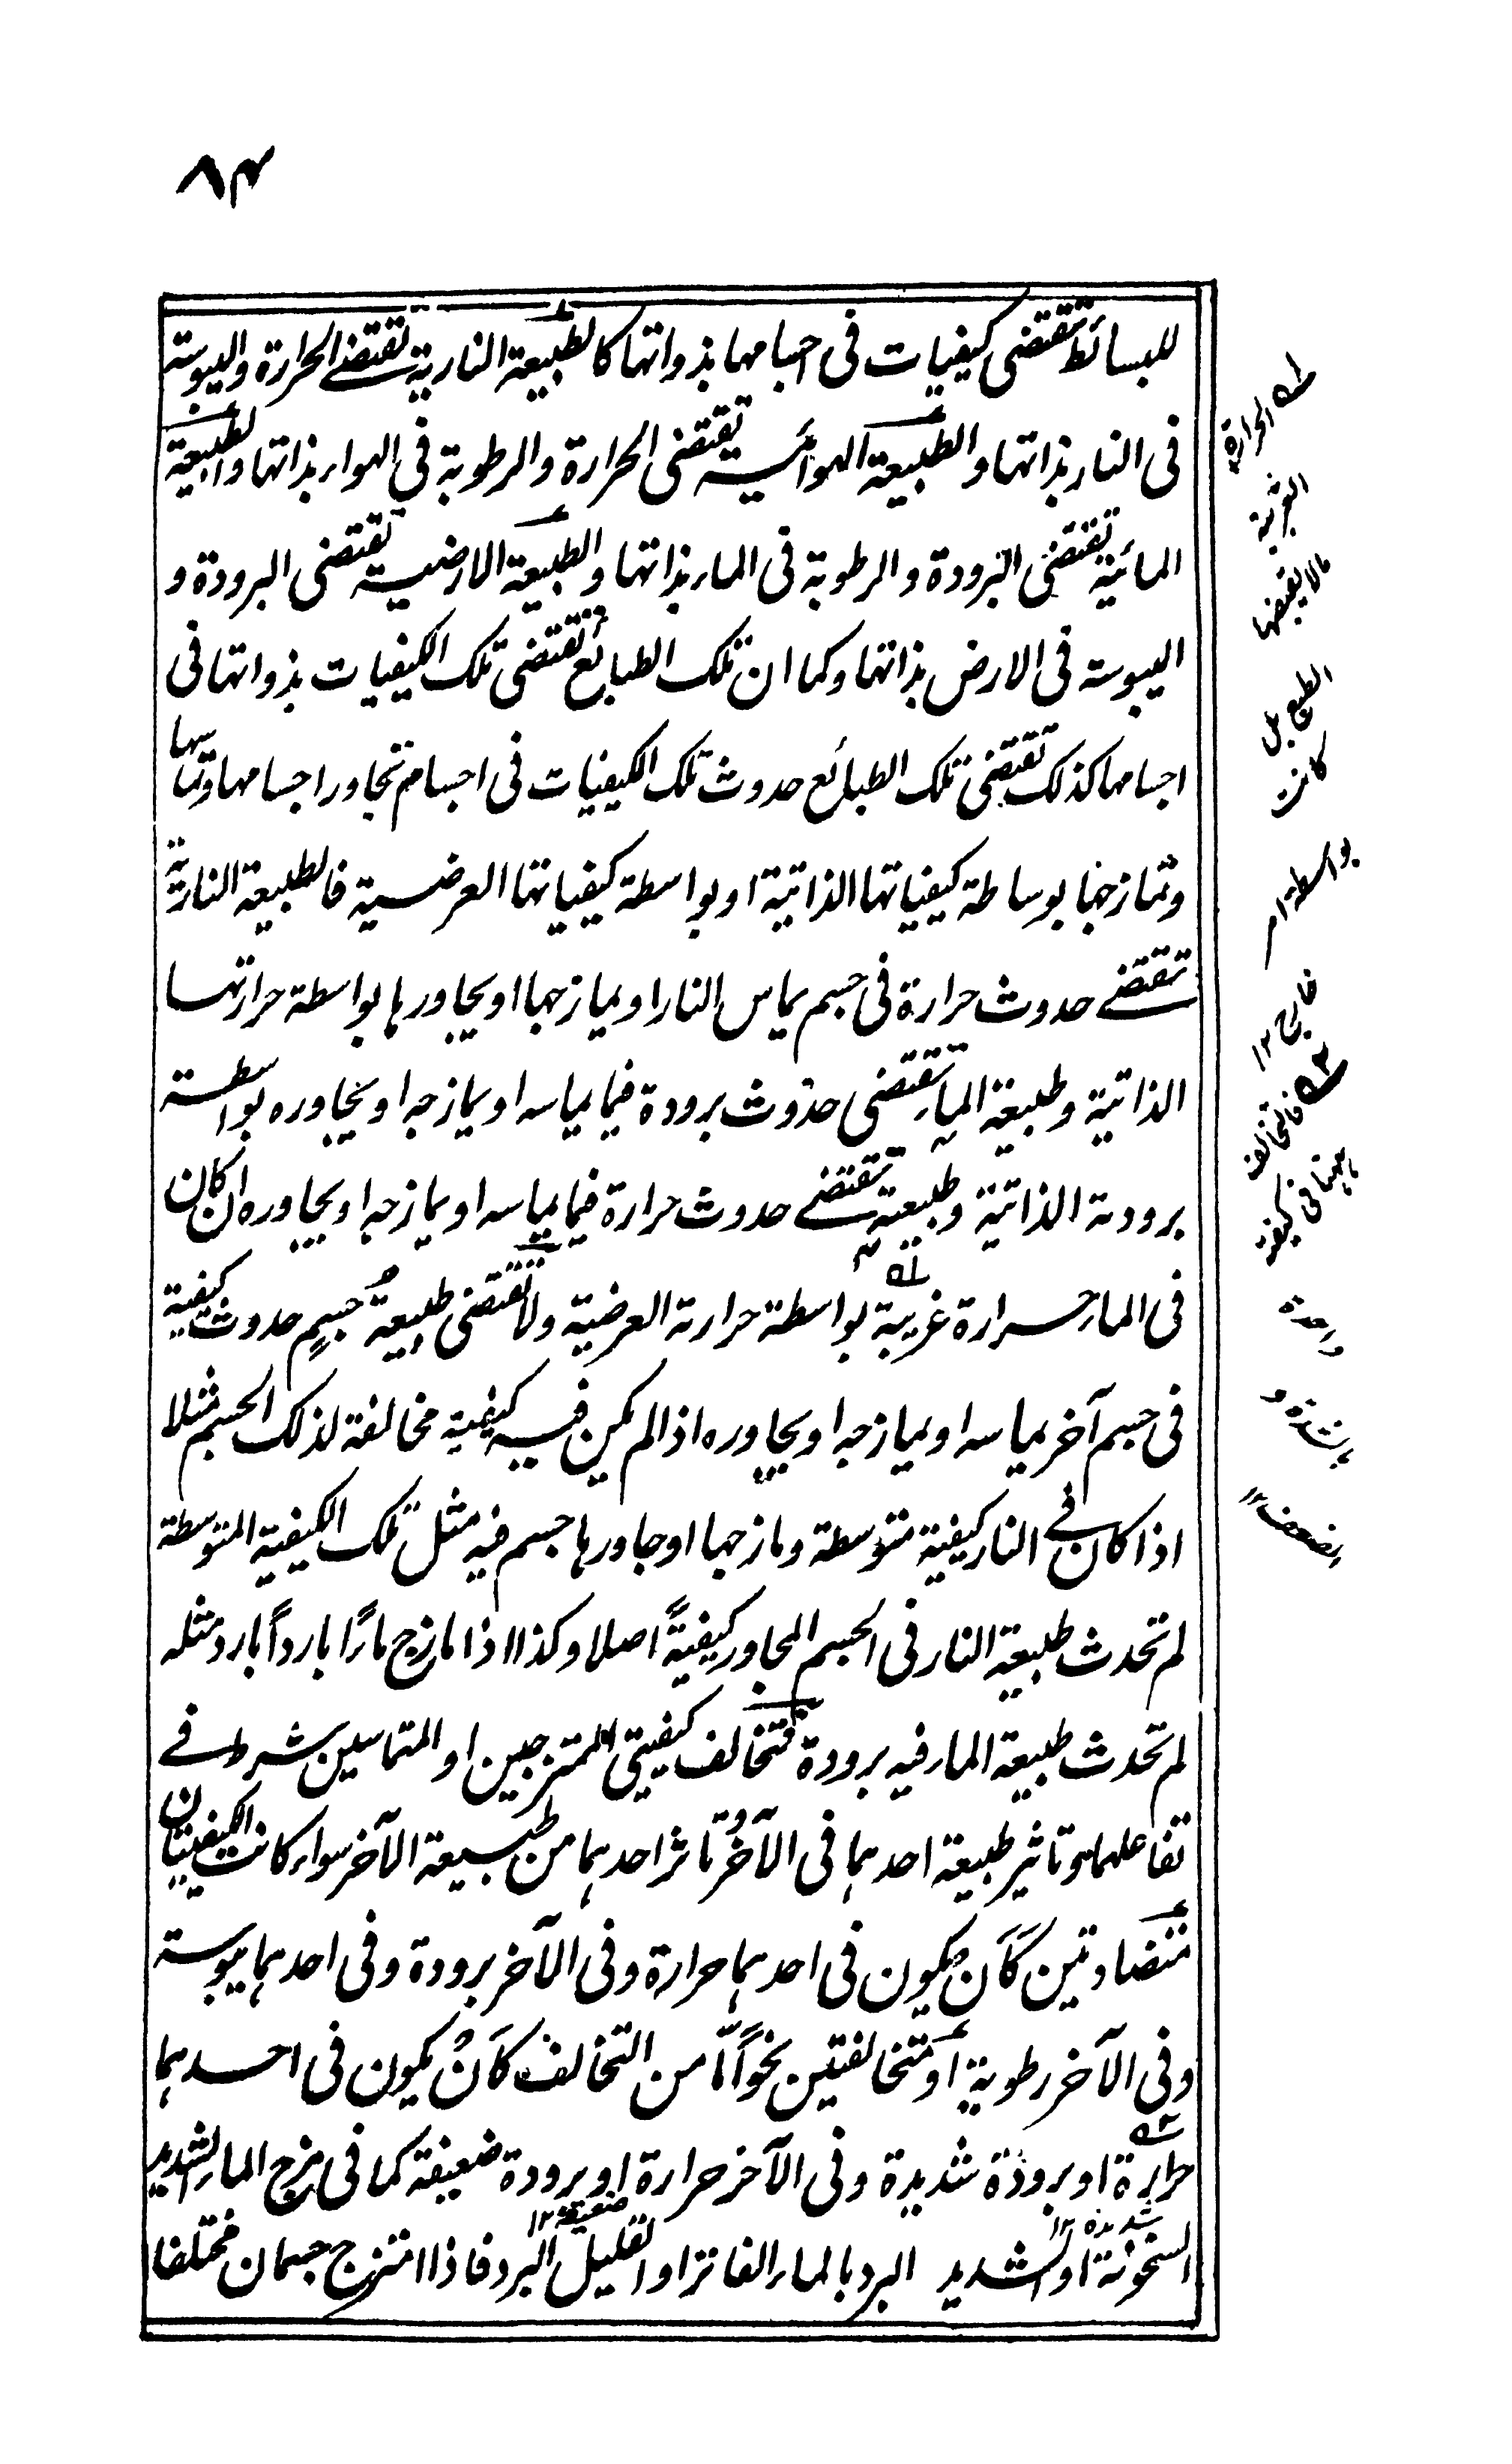 ٨٤
للبسائط تقتضى كيفيات فى اجسامها بذواتها كالطبيعة النارية تقتضى الحرارة واليبوسة
فى النار بذاتها والطبيعة الهوائية تقتضى الحرارة والرطوبة فى الهواء بذاتها والطبيعة
المائية تقتضى البرودة والرطوبة فى الماء بذاتها والطبيعة الارضية تقتضى البرودة و
اليبوسة فى الارض بذاتها وكما ان تلك الطبائع تقتضى تلك الكيفيات بذواتها فى
اجسامها كذلك تقتضى تلك الطبائع حدوث تلك الكيفيات فى اجسام تجاور اجسامها وتماسها
وتمازجها بوساطة كيفياتها الذاتية او بواسطة كيفياتها العرضية فالطبيعة النارية
تقتضى حدوث حرارة فى جسم يماس النار او يمازجها او يجاورها بواسطة حرارتها
الذاتية وطبيعة الماء تقتضى حدوث برودة فيما يماسه او يمازجه او يجاوره بواسطة
برودته الذاتية وطبيعته تقتضى حدوث حرارة فيما يماسه او يمازجه او يجاوره ان كان
فى الماء حرارة غريبة بواسطة حرارته العرضية ولا تقتضى طبيعة جسمٍ حدوث كيفية
فى جسم آخر يماسه او يمازجه او يجاوره اذا لم يكن فيه كيفية مخالفة لذلك الجسم مثلا
اذا كان فى النار كيفية متوسطة ومازجها او جاورها جسم فيه مثل تلك الكيفية المتوسطة
لم تحدث طبيعة النار فى الجسم المجاور كيفيةً اصلا وكذا اذا مازج ماءً بارداً بارد مثله
لم تحدث طبيعة الماء فيه برودة فتخالف كيفيتى الممتزجين او المتماسين شرط فى
تفاعلهما وتاثير طبيعة احدهما فى الآخر وتاثر احدهما من طبيعة الآخر سواء كانت الكيفيتان
متضادتين كأن يكون فى احدهما حرارة وفى الآخر برودة وفى احدهما يبوسة
وفى الآخر رطوبة او متخالفتين نحواً مّا من التخالف كأن يكون فى احدهما
حرارة او برودة شديدة وفى الآخر حرارة او برودة ضعيفة كما فى مزج الماء الشديد
السخونة او الشديد البرد بالماء الفاتر او القليل البرد فاذا امتزج جسمان مختلفا
شديدة ١٢
ضعيفة ١٢
له الحرارة
الغريبة
مالا يقتضيها
الطبع بل
كانت
بواسطة امر
خارج ١٢
فالتخالف
بينهما فى كيفية
واحدة
بشدة و
ضعف ١٢